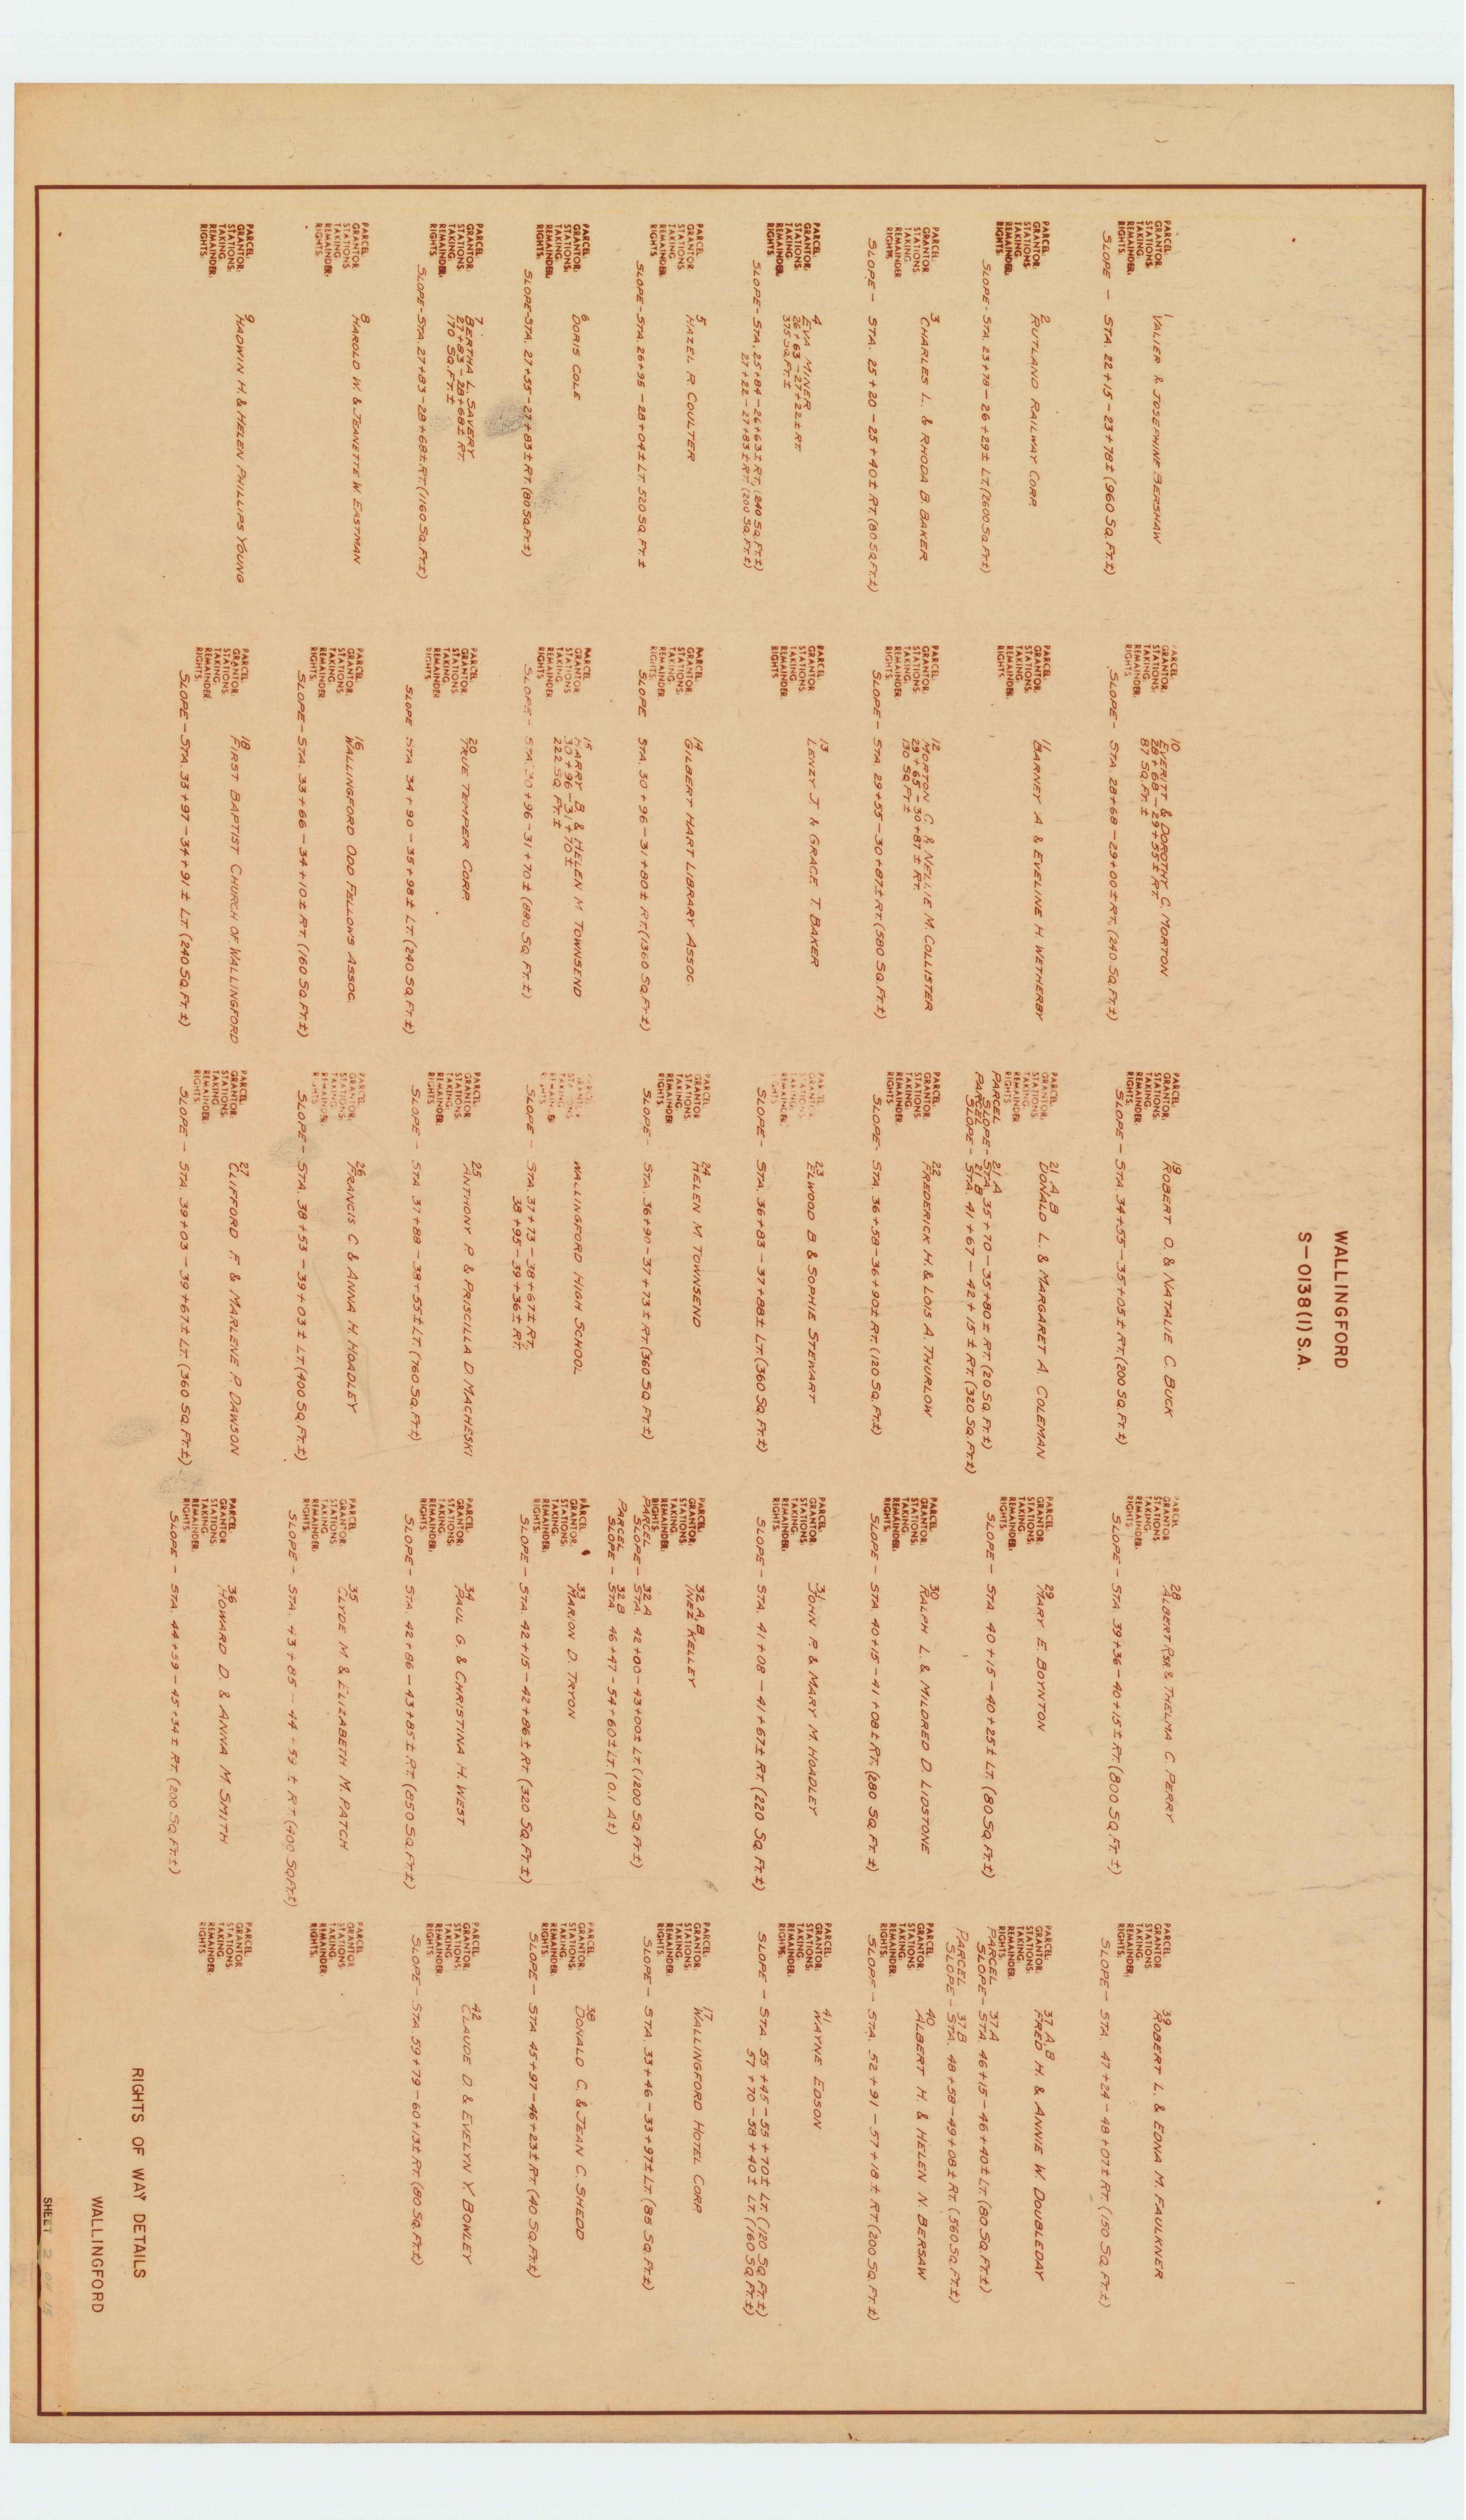 WALLINGFORD
S-0138(1) S.A.
PARCEL: 1
GRANTOR: VALIER & JOSEPHINE BERSHAW
STATIONS:
TAKING:
REMAINDER:
RIGHTS:
SLOPE - STA. 22+15-23+78± (960 SQ.FT.±)
PARCEL: 2
GRANTOR: RUTLAND RAILWAY CORP.
STATIONS:
TAKING:
REMAINDER:
RIGHTS:
SLOPE - STA. 23+78-26+29± LT. (2600 SQ.FT±)
PARCEL: 3
GRANTOR: CHARLES L. & RHODA B. BAKER
STATIONS:
TAKING:
REMAINDER
RIGHTS:
SLOPE - STA. 25+20-25+40± RT. (80 SQ.FT.±)
PARCEL: 4
GRANTOR: EVA MINER
STATIONS: 26+63-27+22± RT
TAKING: 375 SQ.FT.±
REMAINDER:
RIGHTS:
SLOPE - STA. 25+84-26+63± RT., (240 SQ.FT.±)
27+22-27+83± RT. (200 SQ.FT.±)
PARCEL: 5
GRANTOR: HAZEL R. COULTER
STATIONS:
TAKING:
REMAINDER:
RIGHTS:
SLOPE - STA. 26+95-28+04± LT. 520 SQ.FT.±
PARCEL: 6
GRANTOR: DORIS COLE
STATIONS:
TAKING:
REMAINDER:
RIGHTS:
SLOPE - STA. 27+55-27+83± RT. (80 SQ.FT.±)
PARCEL: 7
GRANTOR: BERTHA L. SAVERY
STATIONS: 27+83-28+68± RT.
TAKING: 170 SQ.FT.±
REMAINDER:
RIGHTS:
SLOPE - STA. 27+83-28+68± RT. (1160 SQ.FT.±)
PARCEL: 8
GRANTOR: HAROLD W. & JEANETTE W. EASTMAN
STATIONS
TAKING:
REMAINDER:
RIGHTS:
PARCEL: 9
GRANTOR: HADWIN H. & HELEN PHILLIPS YOUNG
STATIONS:
TAKING:
REMAINDER:
RIGHTS:
PARCEL: 10
GRANTOR: EVERITT & DOROTHY C. MORTON
STATIONS: 28+68-29+55± RT.
TAKING: 87 SQ.FT.±
REMAINDER:
RIGHTS:
SLOPE - STA. 28+68-29+00± RT. (240 SQ.FT.±)
PARCEL: 11
GRANTOR: BARNEY A. & EVELINE H. WETHERBY
STATIONS:
TAKING:
REMAINDER:
RIGHTS:
PARCEL: 12
GRANTOR: MORTON C. & NELLIE M. COLLISTER
STATIONS: 29+65-30+87± RT.
TAKING: 130 SQ.FT.±
REMAINDER:
RIGHTS:
SLOPE - STA. 29+55-30+87± RT. (580 SQ.FT.±)
PARCEL: 13
GRANTOR: LENZY J. & GRACE T. BAKER
STATIONS:
TAKING:
REMAINDER:
RIGHTS:
PARCEL: 14
GRANTOR: GILBERT HART LIBRARY ASSOC.
STATIONS:
TAKING:
REMAINDER:
RIGHTS:
SLOPE STA. 30+96-31+80± RT. (1360 SQ.FT.±)
PARCEL: 15
GRANTOR: HARRY B. & HELEN M. TOWNSEND
STATIONS: 30+96-31+70±
TAKING: 222 SQ. FT.±
REMAINDER:
RIGHTS:
SLOPE - STA. 30+96-31+70± (880 SQ. FT.±)
PARCEL: 20
GRANTOR: TRUE TEMPER CORP.
STATIONS:
TAKING:
REMAINDER:
RIGHTS:
SLOPE STA 34+90-35+98± LT. (240 SQ.FT.±)
PARCEL: 16
GRANTOR: WALLINGFORD ODD FELLOWS ASSOC.
STATIONS:
TAKING:
REMAINDER:
RIGHTS:
SLOPE - STA. 33+66-34+10± RT. (160 SQ.FT.±)
PARCEL: 18
GRANTOR: FIRST BAPTIST CHURCH OF WALLINGFORD
STATIONS:
TAKING:
REMAINDER:
RIGHTS:
SLOPE - STA. 33+97-34+91± LT. (240 SQ.FT.±)
PARCEL: 19
GRANTOR: ROBERT O. & NATALIE C. BUCK
STATIONS:
TAKING:
REMAINDER:
RIGHTS:
SLOPE - STA 34+55-35+05± RT. (200 SQ.FT.±)
PARCEL: 21 A, B
GRANTOR: DONALD L. & MARGARET A. COLEMAN
STATIONS:
TAKING:
REMAINDER
RIGHTS
PARCEL 21 A
SLOPE - STA. 35+70-35+80± RT. (20 SQ.FT.±)
PARCEL 21 B
SLOPE - STA. 41+67-42+15± RT. (320 SQ.FT.±)
PARCEL: 22
GRANTOR: FREDERICK H. & LOIS A. THURLOW
STATIONS:
TAKING:
REMAINDER:
RIGHTS:
SLOPE - STA. 36+58-36+90± RT. (120 SQ.FT.±)
PARCEL 23
GRANTOR: ELWOOD B. & SOPHIE STEWART
STATIONS:
TAKING:
REMAINDER:
RIGHTS
SLOPE - STA. 36+83-37+88± LT. (360 SQ.FT.±)
PARCEL 24
GRANTOR: HELEN M. TOWNSEND
STATIONS:
TAKING:
REMAINDER:
RIGHTS:
SLOPE - STA. 36+90-37+73± RT. (360 SQ.FT.±)
GRANTOR: WALLINGFORD HIGH SCHOOL
STATIONS
TAKING
REMAINDER
RIGHTS
SLOPE - STA. 37+73-38+67± RT.,
38+95-39+36± RT.
PARCEL: 25
GRANTOR: ANTHONY P. & PRISCILLA D. MACHESKI
STATIONS:
TAKING:
REMAINDER:
RIGHTS
SLOPE - STA 37+88-38+55± LT. (760 SQ.FT.±)
PARCEL: 26
GRANTOR: FRANCIS C. & ANNA H. HOADLEY
STATIONS
TAKING
REMAINDER:
RIGHTS
SLOPE - STA. 38+53-39+03± LT. (400 SQ.FT.±)
PARCEL: 27
GRANTOR: CLIFFORD F. & MARLENE P. DAWSON
STATIONS:
TAKING:
REMAINDER:
RIGHTS:
SLOPE - STA. 39+03-39+67± LT. (360 SQ.FT.±)
PARCEL 28
GRANTOR ALBERT R. SR. & THELMA C. PERRY
STATIONS
TAKING
REMAINDER:
RIGHTS:
SLOPE - STA 39+36-40+15± RT. (800 SQ.FT.±)
PARCEL: 29
GRANTOR: MARY E. BOYNTON
STATIONS:
TAKING:
REMAINDER:
RIGHTS:
SLOPE - STA. 40+15-40+25± LT. (80 SQ.FT.±)
PARCEL: 30
GRANTOR: RALPH L. & MILDRED D. LIDSTONE
STATIONS:
TAKING:
REMAINDER:
RIGHTS:
SLOPE - STA 40+15-41+08± RT. (280 SQ.FT.±)
PARCEL: 31
GRANTOR: JOHN P. & MARY M. HOADLEY
STATIONS:
TAKING:
REMAINDER:
RIGHTS:
SLOPE - STA. 41+08-41+67± RT. (220 SQ.FT.±)
PARCEL: 32 A, B
GRANTOR: INEZ KELLEY
STATIONS:
TAKING:
REMAINDER:
RIGHTS:
PARCEL 32 A
SLOPE - STA. 42+00-43+00± LT. (1200 SQ.FT.±)
PARCEL 32 B
SLOPE - STA 46+47-54+60± LT. (0.1 A±)
PARCEL: 33
GRANTOR: MARION D. TRYON
STATIONS:
TAKING:
REMAINDER:
RIGHTS:
SLOPE - STA. 42+15-42+86± RT. (320 SQ.FT.±)
PARCEL: 34
GRANTOR: PAUL G. & CHRISTINA H. WEST
STATIONS:
TAKING:
REMAINDER:
RIGHTS
SLOPE - STA. 42+86-43+85± RT. (850 SQ.FT.±)
PARCEL: 35
GRANTOR: CLYDE M. & ELIZABETH M. PATCH
STATIONS:
TAKING:
REMAINDER:
RIGHTS:
SLOPE - STA. 43+85-44+59± RT. (400 SQ.FT.±)
PARCEL: 36
GRANTOR: HOWARD D. & ANNA M. SMITH
STATIONS:
TAKING
REMAINDER:
RIGHTS:
SLOPE - STA. 44+59-45+34± RT. (200 SQ.FT.±)
PARCEL: 39
GRANTOR: ROBERT L. & EDNA M. FAULKNER
STATIONS
TAKING:
REMAINDER:
RIGHTS:
SLOPE - STA. 47+24-48+07± RT. (150 SQ.FT.±)
PARCEL: 37 A, B
GRANTOR: FRED H. & ANNIE W. DOUBLEDAY
STATIONS:
TAKING:
REMAINDER:
RIGHTS:
PARCEL 37 A
SLOPE - STA. 46+15-46+40± LT. (80 SQ.FT.±)
PARCEL 37 B
SLOPE - STA. 48+58-49+08± RT. (560 SQ.FT.±)
PARCEL: 40
GRANTOR: ALBERT H. & HELEN N. BERSAW
STATIONS:
TAKING:
REMAINDER:
RIGHTS:
SLOPE - STA. 52+91-57+18± RT. (200 SQ.FT.±)
PARCEL: 41
GRANTOR: WAYNE EDSON
STATIONS:
TAKING:
REMAINDER:
RIGHTS:
SLOPE - STA. 55+45-55+70± LT. (120 SQ.FT.±)
57+70-58+40± LT. (160 SQ.FT.±)
PARCEL: 17
GRANTOR: WALLINGFORD HOTEL CORP
STATIONS:
TAKING:
REMAINDER:
RIGHTS:
SLOPE - STA. 33+46-33+97± LT. (85 SQ.FT.±)
PARCEL: 38
GRANTOR: DONALD C. & JEAN C. SHEDD
STATIONS:
TAKING:
REMAINDER:
RIGHTS:
SLOPE - STA 45+97-46+23± RT. (40 SQ.FT.±)
PARCEL: 42
GRANTOR: CLAUDE D. & EVELYN Y. BOWLEY
STATIONS:
TAKING:
REMAINDER:
RIGHTS:
SLOPE - STA 59+79-60+13± RT. (80 SQ.FT.±)
PARCEL:
GRANTOR
STATIONS:
TAKING:
REMAINDER:
RIGHTS:
PARCEL:
GRANTOR
STATIONS:
TAKING:
REMAINDER:
RIGHTS
RIGHTS OF WAY DETAILS
WALLINGFORD
SHEET 2 OF 15